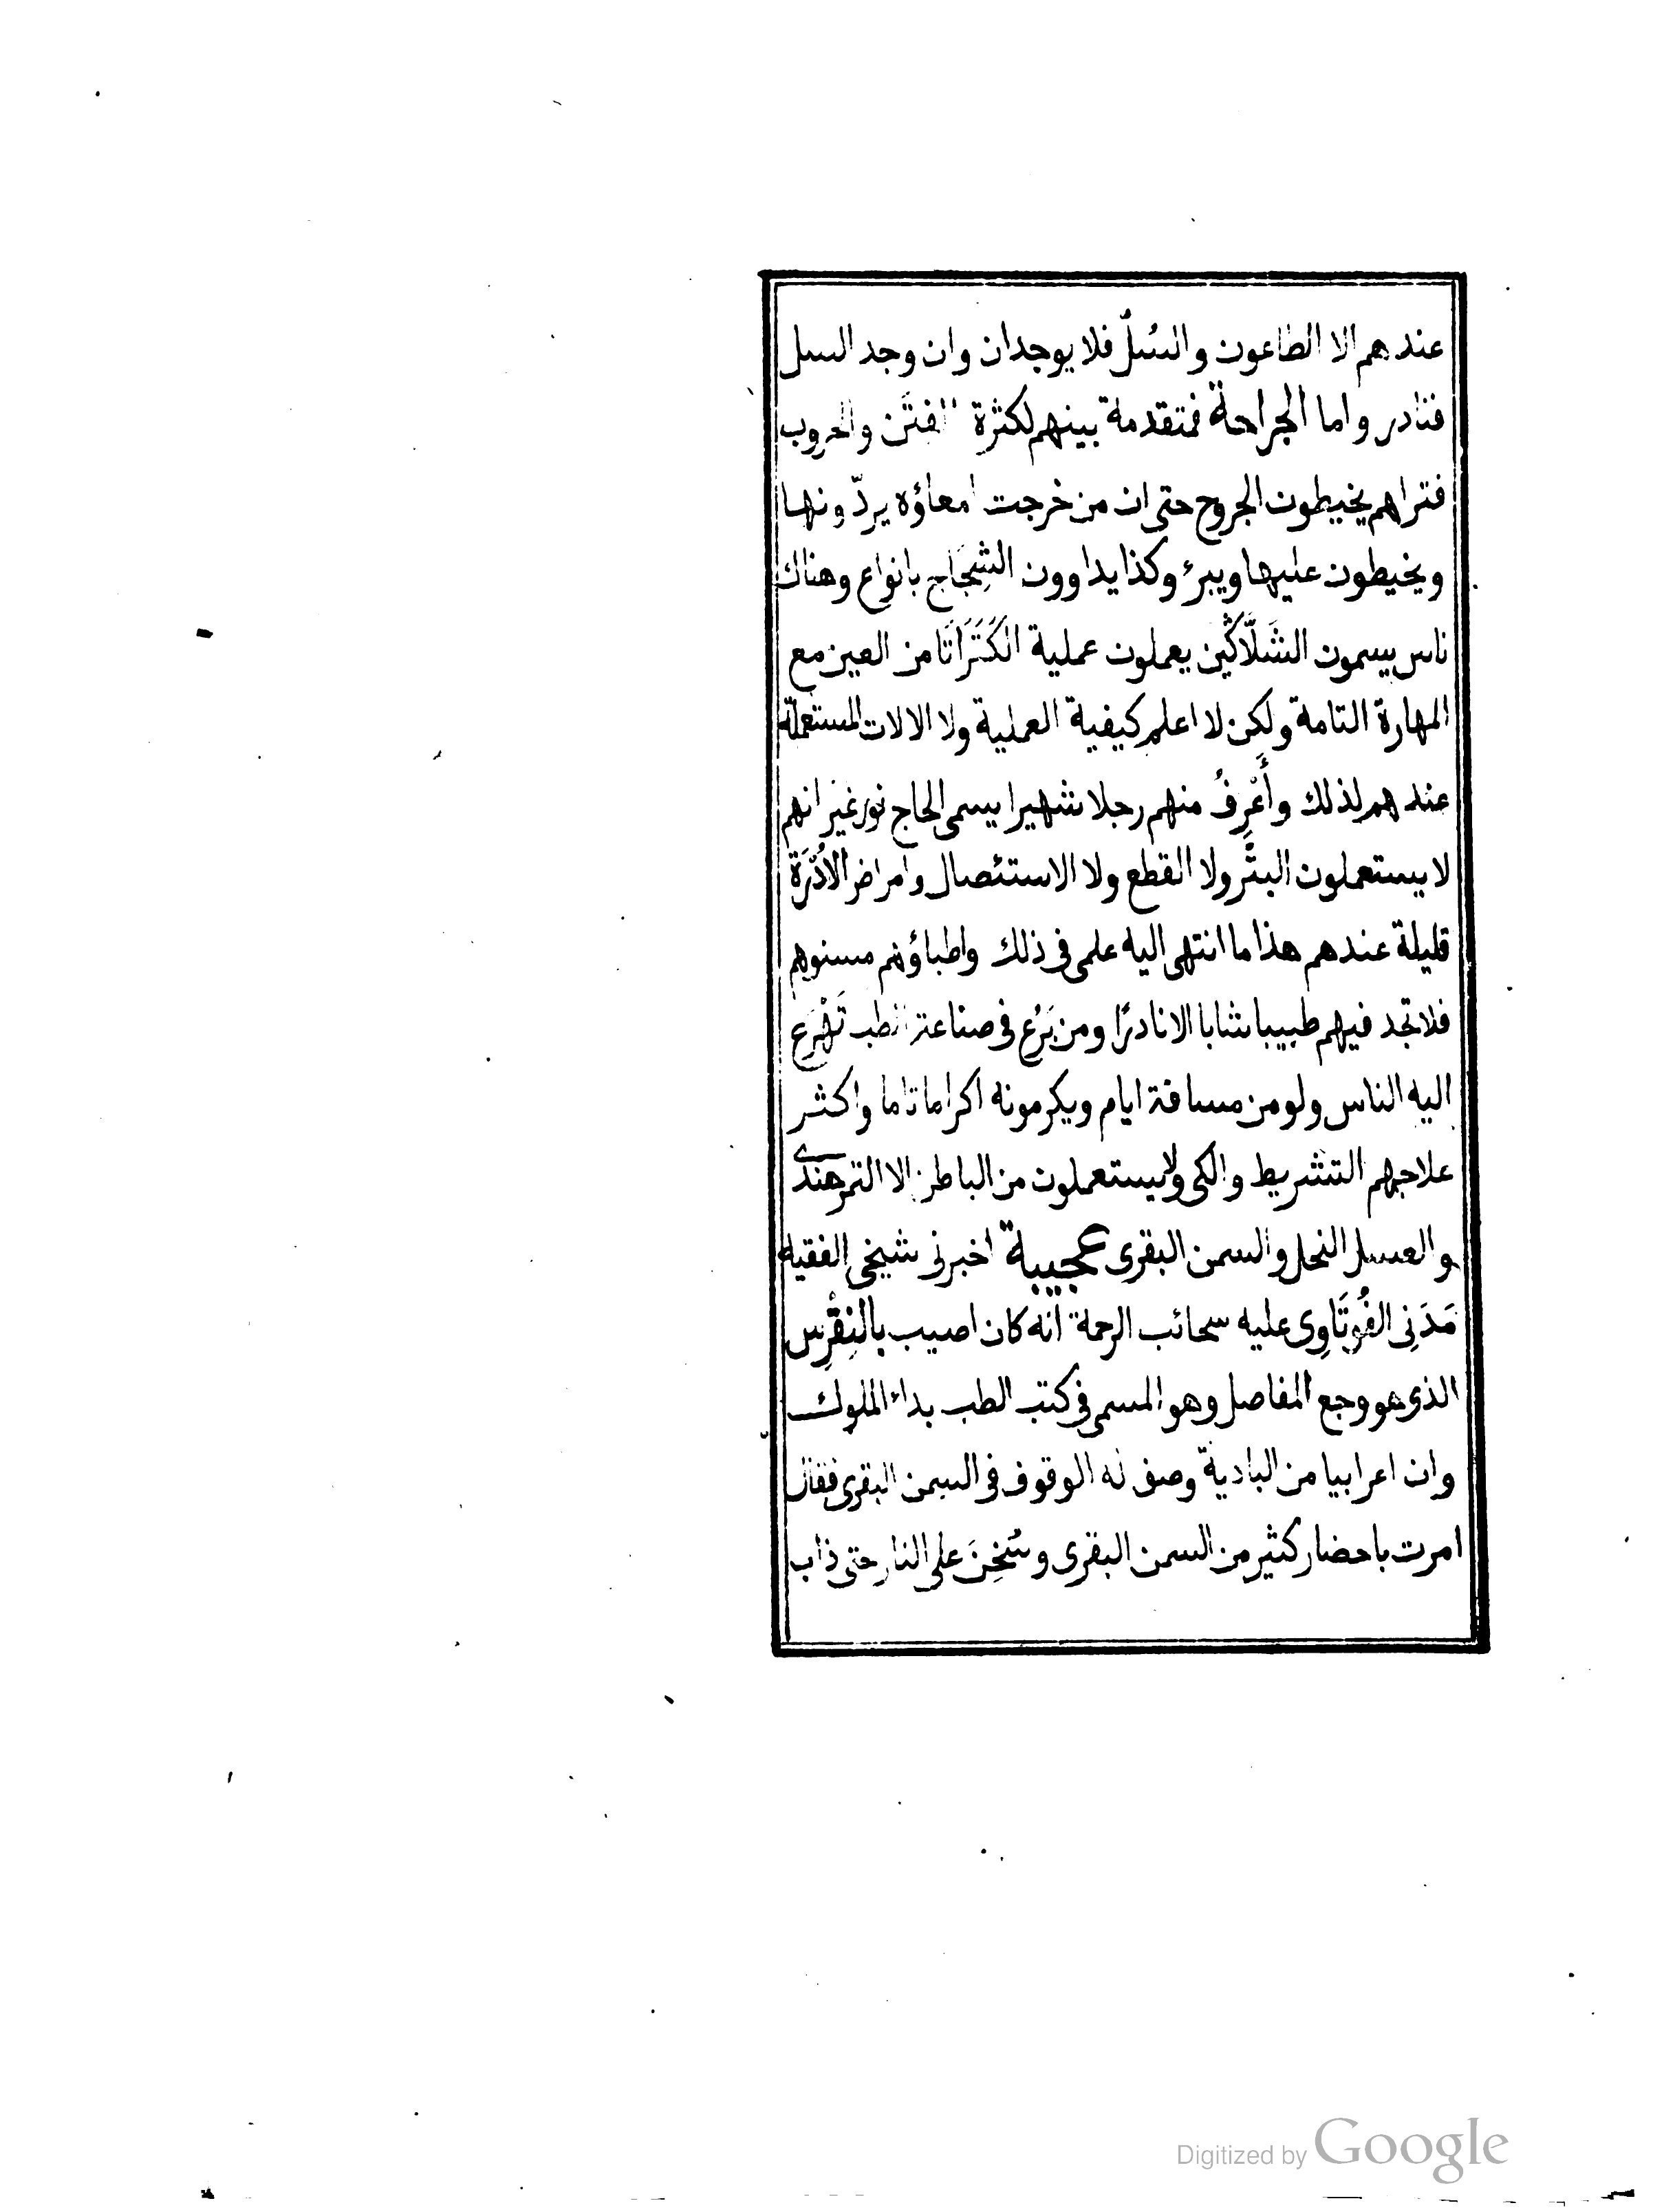 عندهم الا الطاعون والسُّلّ فلا يوجدان وان وجد السل
فنادر واما الجراحة فمتقدمة بينهم لكثرة الفتن والحروب
فتراهم يخيطون الجروح حتى ان من خرجت امعاؤه يردّونها
ويخيطون عليها ويبرء وكذا يداوون الشِجَاج بانواع وهناك
ناس يسمون الشَلَّاكِين يعملون عملية الكَتَرَاتَا من العين مع
المهارة التامة ولكن لا اعلم كيفية العملية ولا الالات المستعملة
عندهم لذلك وأَعْرِفُ منهم رجلا شهيرا يسمى الحاج نور غير انهم
لا يستعملون البتْر ولا القطع ولا الاستئصال وامراض الأُدْرَة
قليلة عندهم هذا ما انتهى اليه علمى فى ذلك واطباؤهم مسنوهم
فلا تجد فيهم طبيبا شابا الا نادرًا ومن بَرَع فى صناعة الطب تَهْرَع
اليه الناس ولو من مسافة ايام ويكرمونه اكراما تاما واكثر
علاجهم التشريط والكى ولا يستعملون من الباطن الا التمر هندى
والعسل النحل والسمن البقرى عجيبة اخبرنى شيخى الفقيه
مَدَنِى الفُوتَاوِى عليه سحائب الرحمة انه كان اصيب بالنِقْرِس
الذى هو وجع المفاصل وهو المسمى فى كتب الطب بداء الملوك
وان اعرابيا من البادية وصف له الوقوف فى السمن البقرى فقال
امرت باحضار كثير من السمن البقرى وسُخِنَ على النار حتى ذاب
Digitized by Google